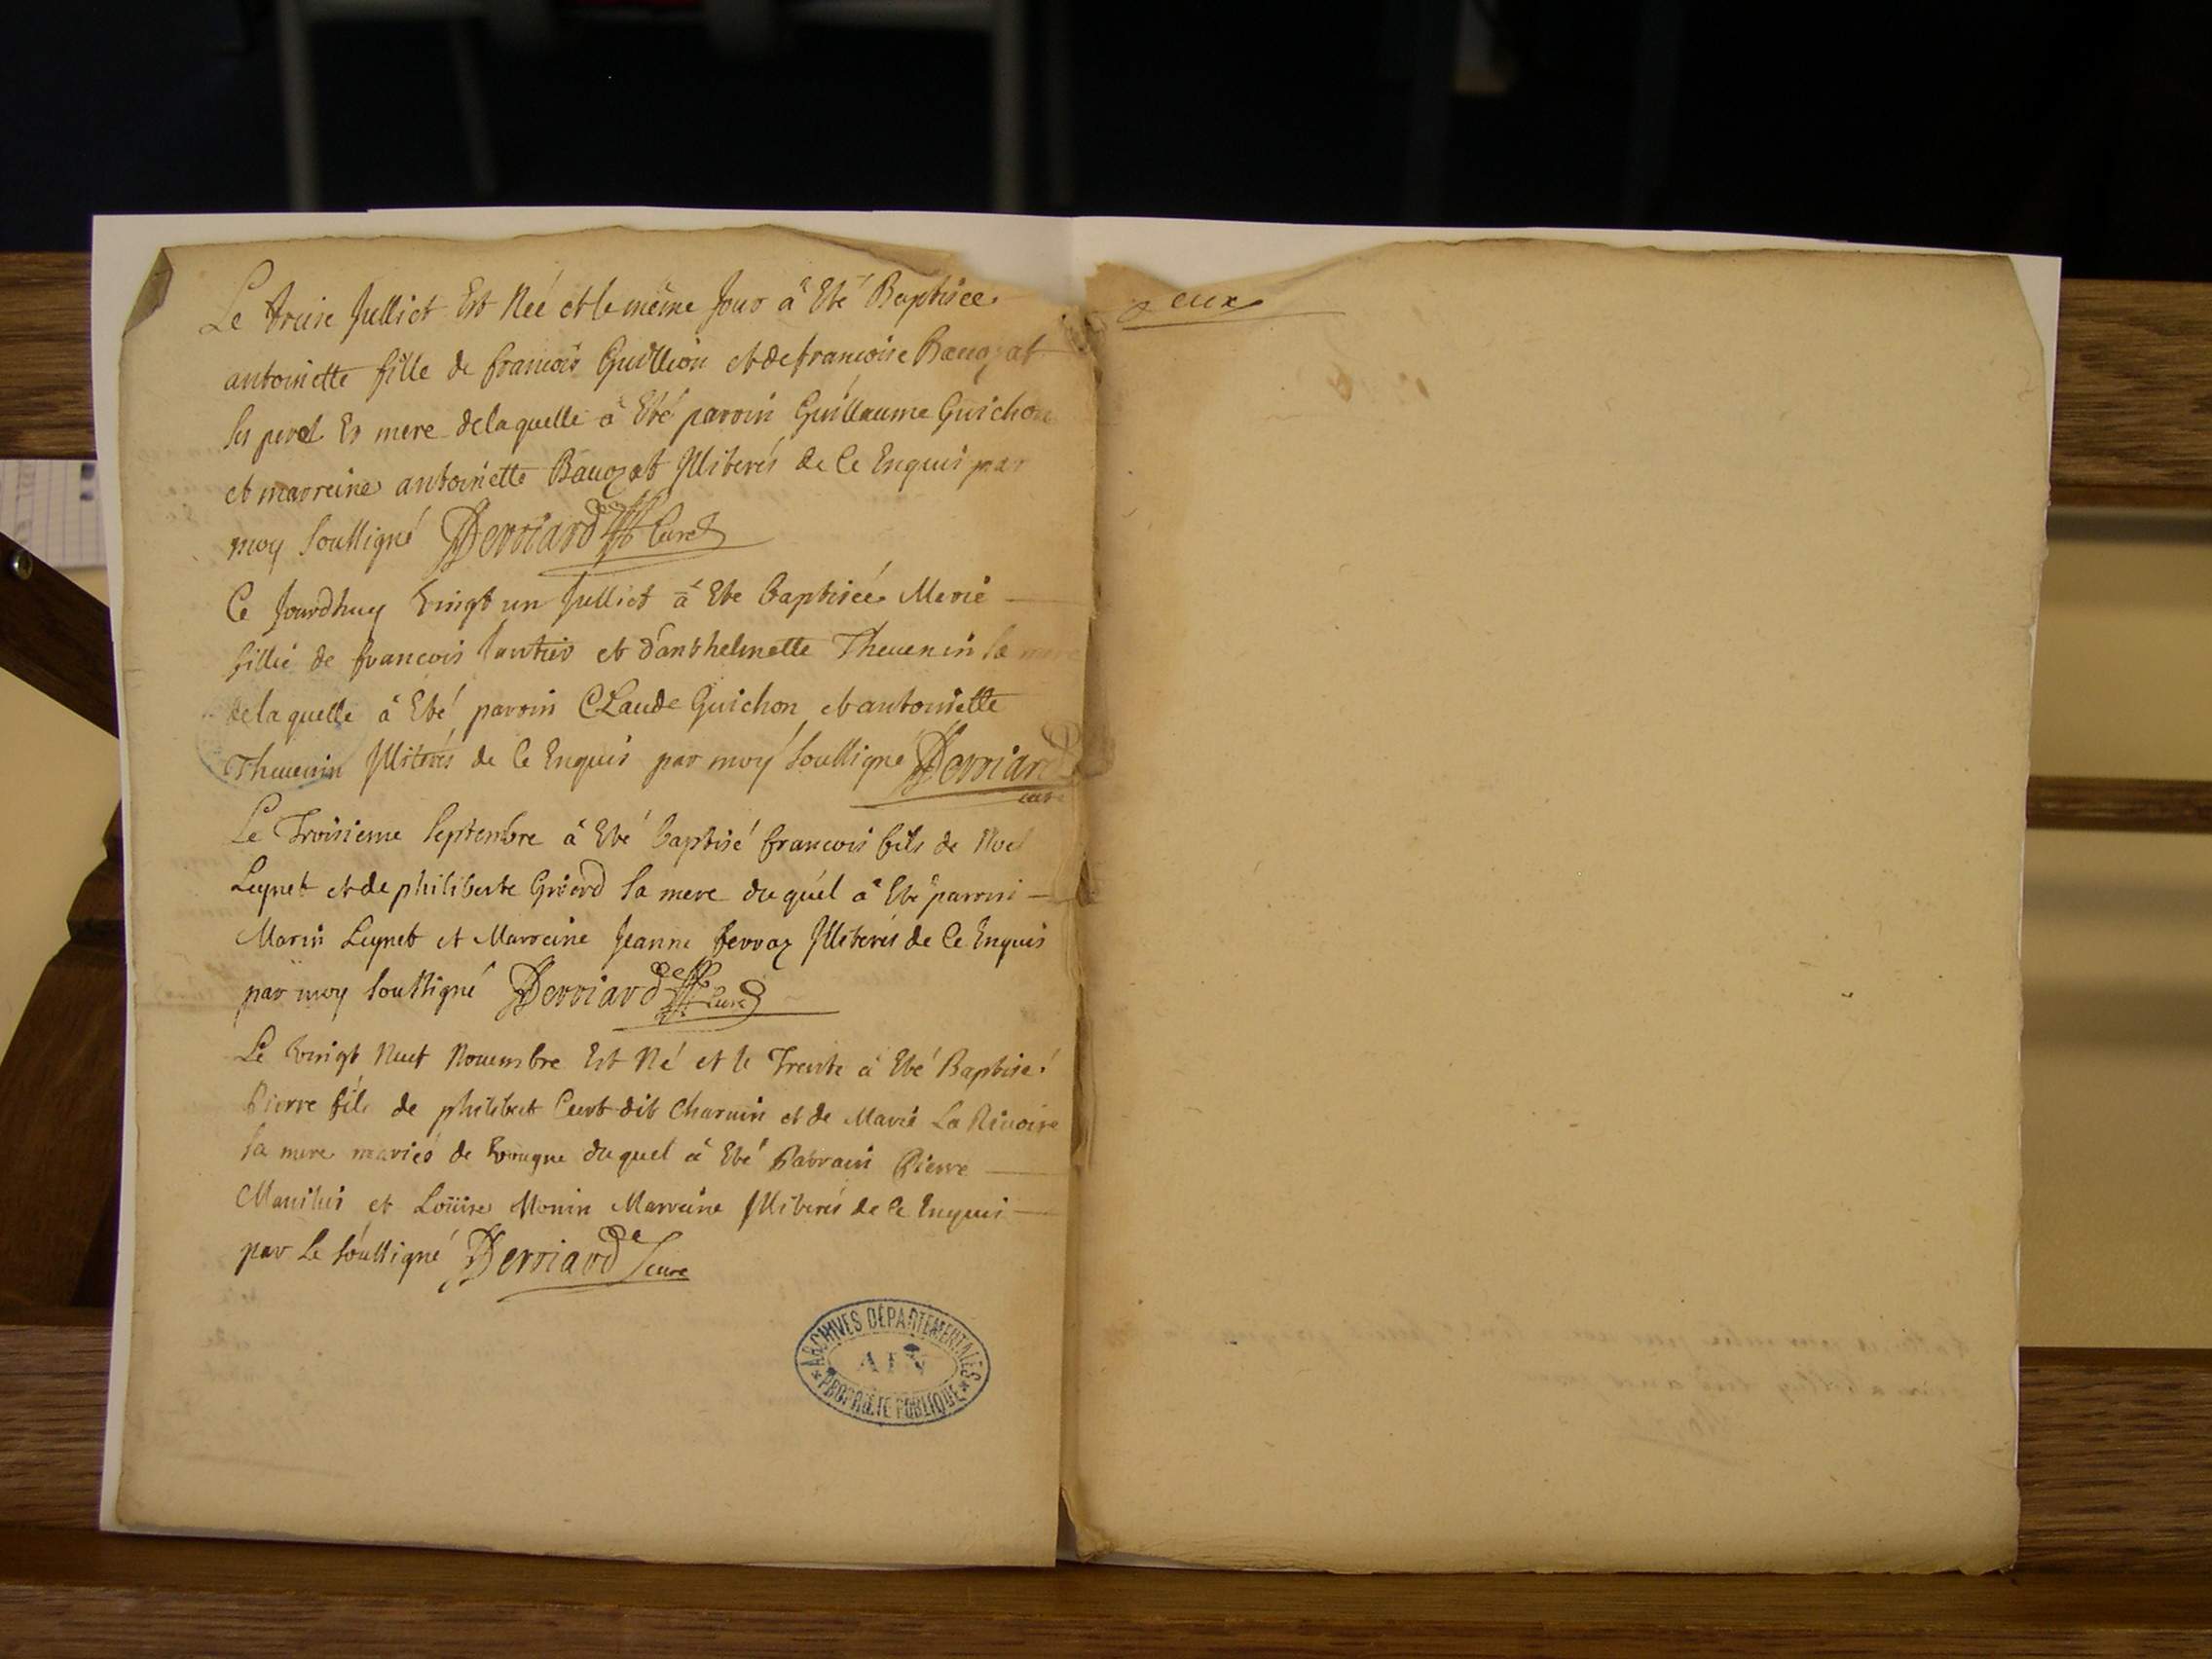 Le treise Julliet Est Neé et le même Jour â Eté Baptisée
antoinette fille de francois Guillion et de francoise Bauozat
Ses pere Et mere de laquelle â Eté paroin Guillaume Guichon
et marreine antoinette Bauozat Jlliterés de Ce Enquis par
moy Soussigné Derriard Curé
Ce Jourdhuy Vingt un Julliet â Ete baptisée Marie
fille de francois Jantier et d'anthelmette Thevenin Sa mere
de laquelle â Eté paroin CLaude Guichon et antoinette
Thevenin Jlliterés de Ce Enquis par moy Soussigné Derriard
curé
Le Troisieme Septembre â Eté baptisé francois fils de Noel
Leynet et de philiberte Girard Sa mere duquel â Eté paroin
Marin Leynet et Marreine Jeanne ferroz Jlliterés de Ce Enquis
par moy Soussigné Derriard Curé
Le Vingt Neuf Novembre Est Né et le Trente â Eté Baptisé
Pierre fils de philibert Curt dit Charvin et de Marie La Rivoire
Sa mere mariés de duquel â Eté Patrain Pierre
et Loüise Monin Marreine Jlliterés de Ce Enquis
par Le Soussigné Derriard Curé
ARCHIVES DÉPARTEMENTALES
AIN
PROPRIÉTÉ PUBLIQUE